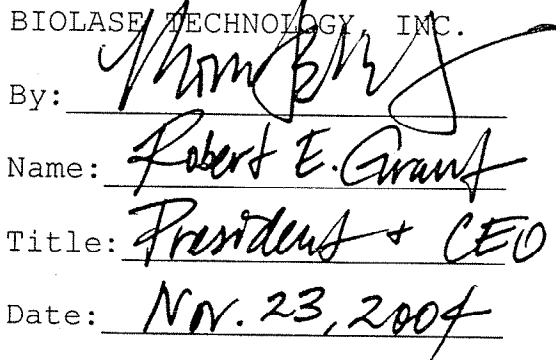 BIOLASE TECHNOLOGY, INC.
By:
Name: Robert E. Grant
Title: President + CEO
Date: Nov. 23, 2004